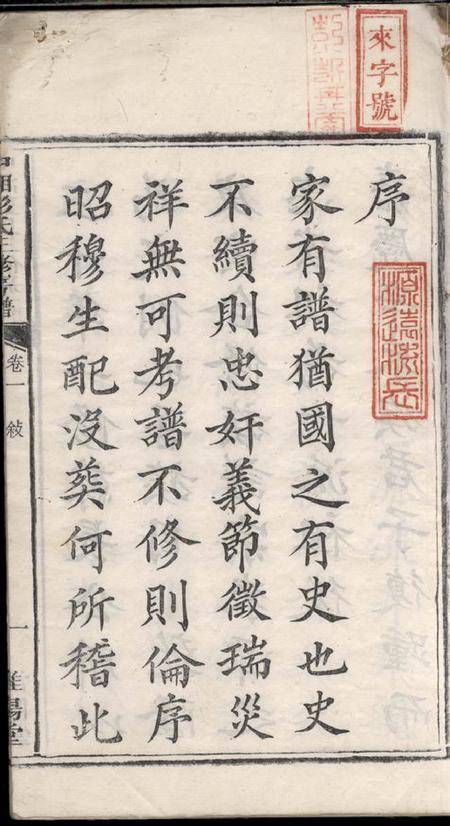 來字號
序
源遠流長
家有譜猶國之有史也史
不續則忠奸義節徵瑞災
祥無可考譜不修則倫序
昭穆生配没葵何所稽此
氏三修
譜
卷一
敍
一
陽堂